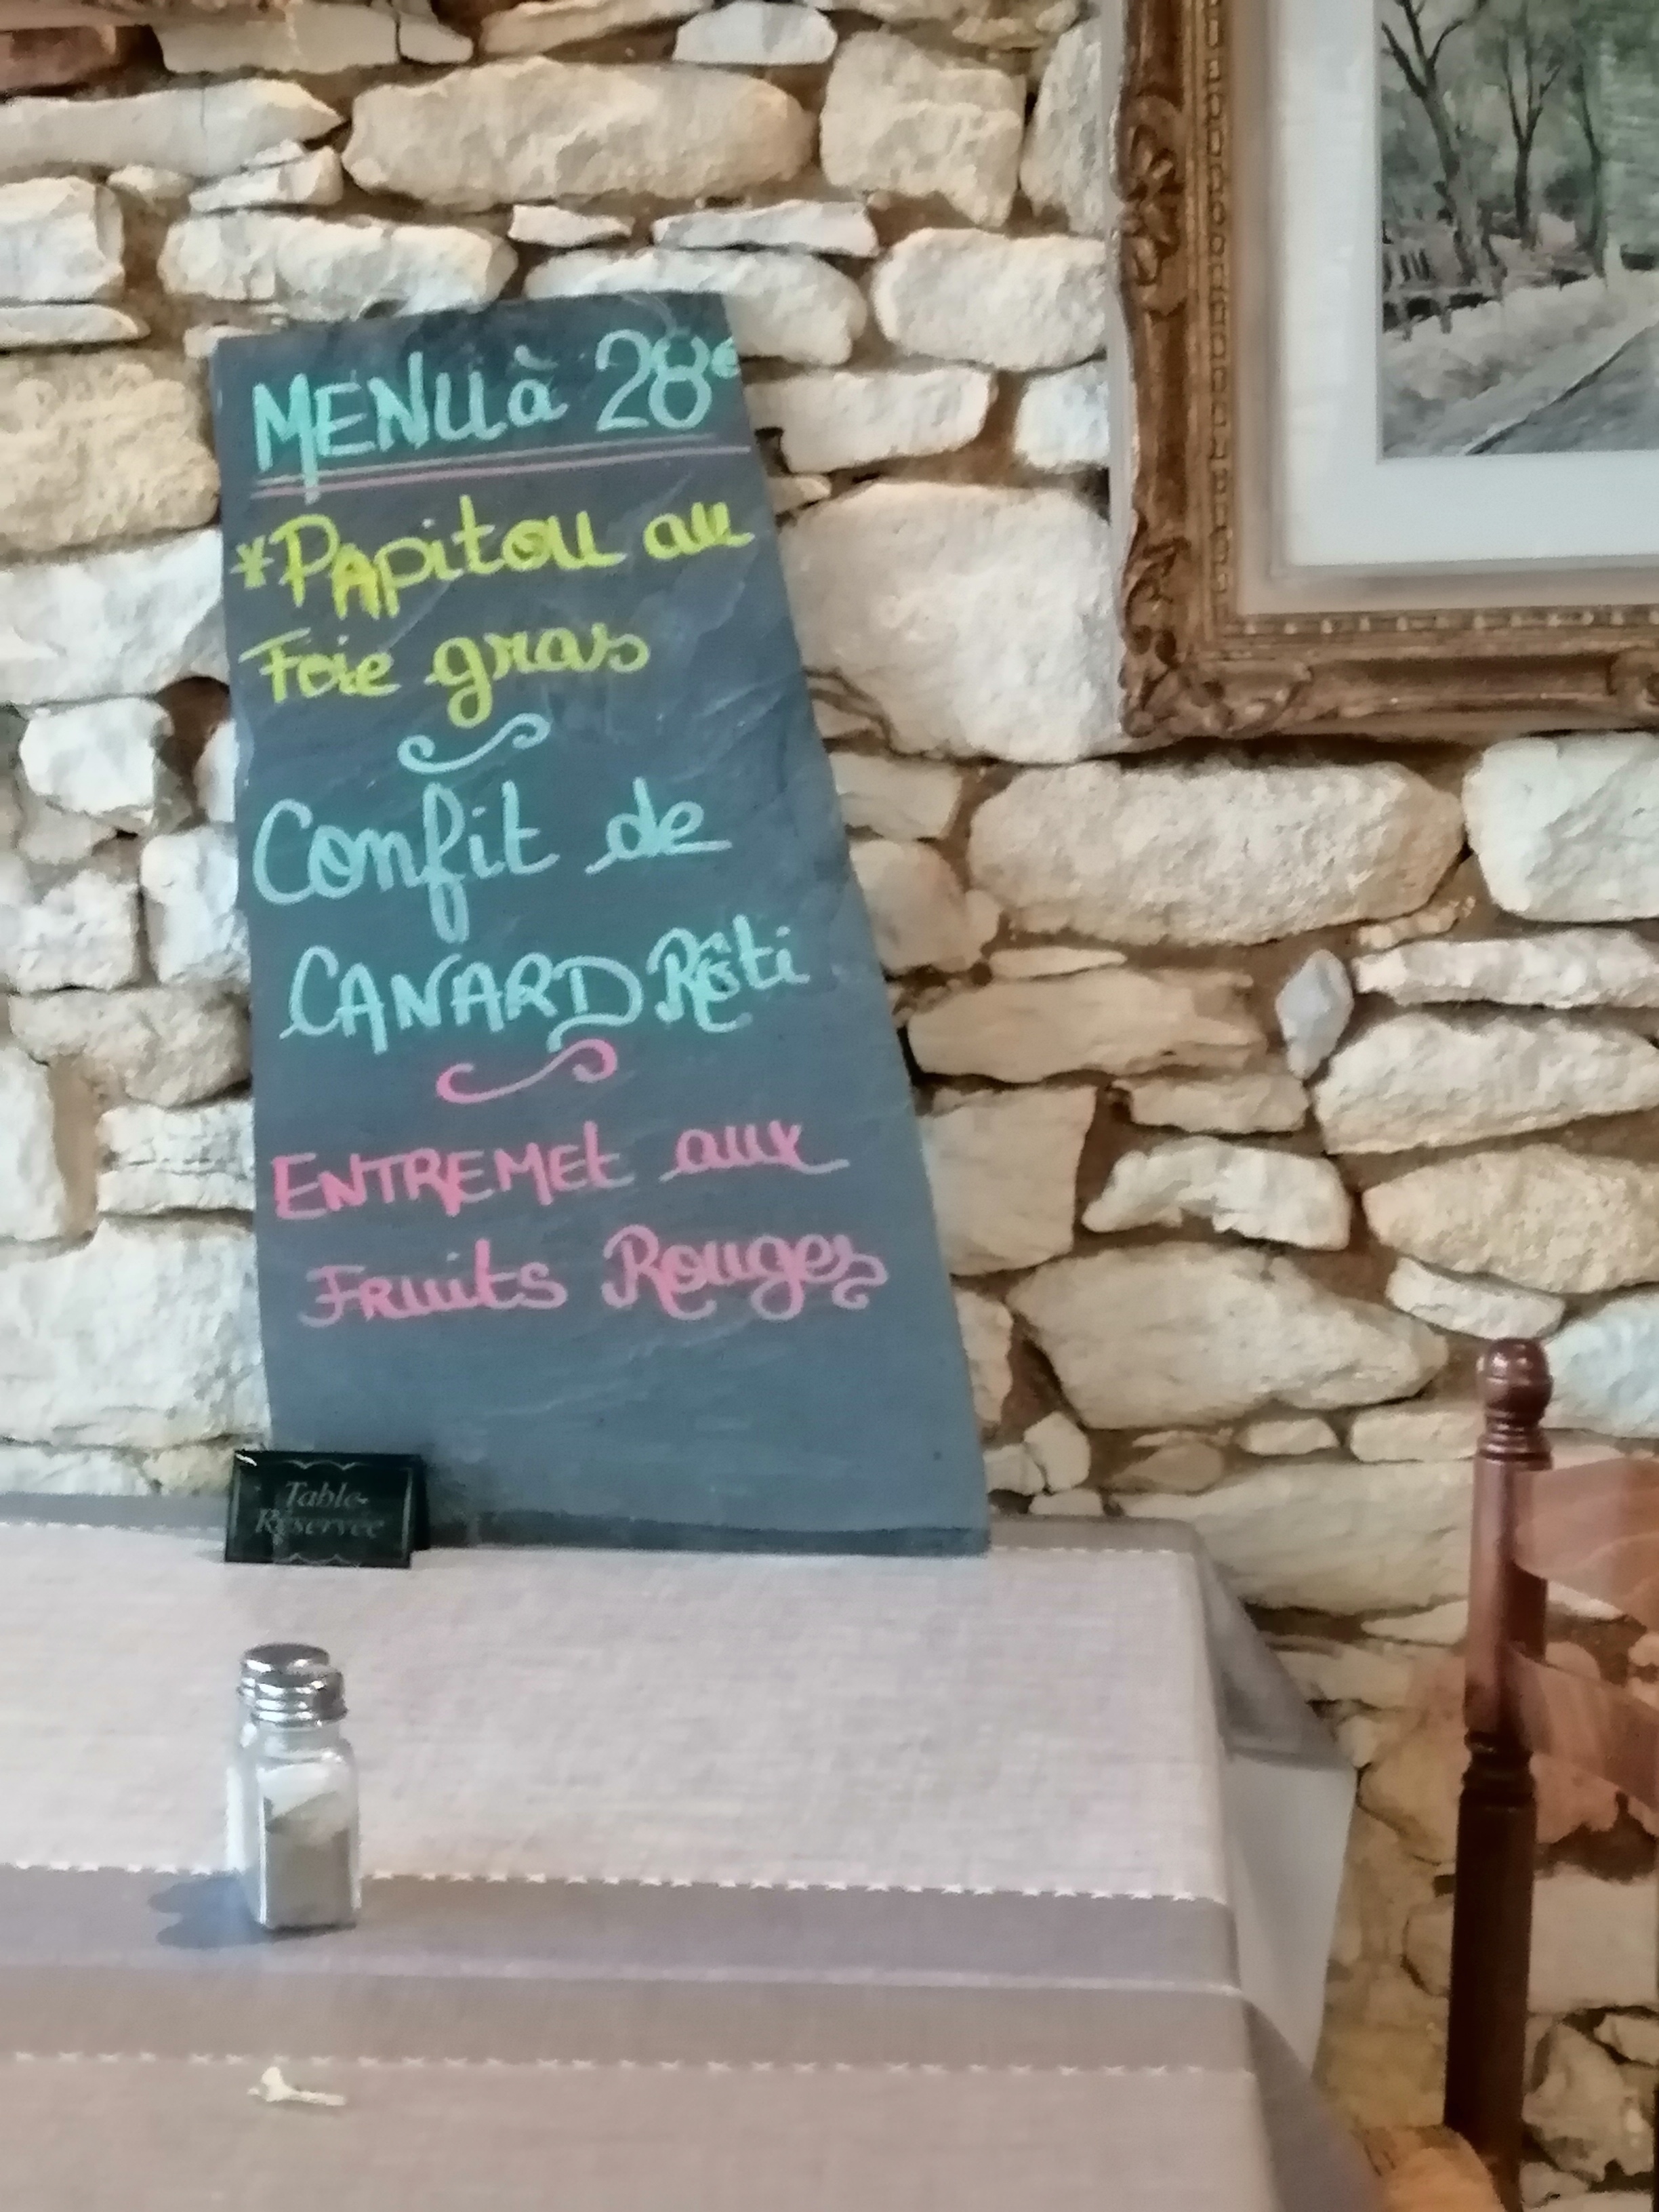 MENU à 28€
*PApitou au
Foie gras
Confit de
CANARD Rôti
ENTREMEt aux
FRuits Rouges
Table
Réservée